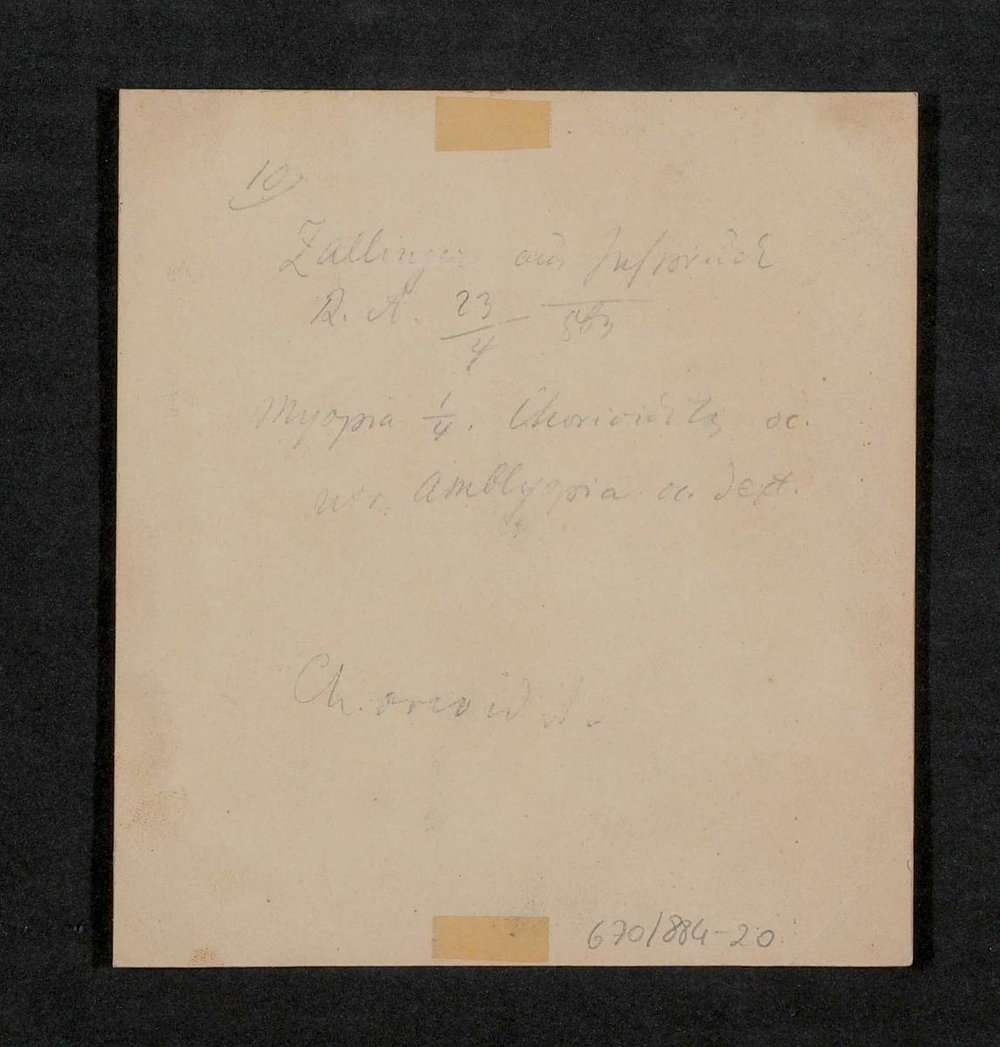 10)
Zallinger aus Inspruck
R. A. 23/4 863
Myopia 1/4. Chorioiditis oc.
utr. Amblyopia oc. dext.
Chorioidit.
670/884-20